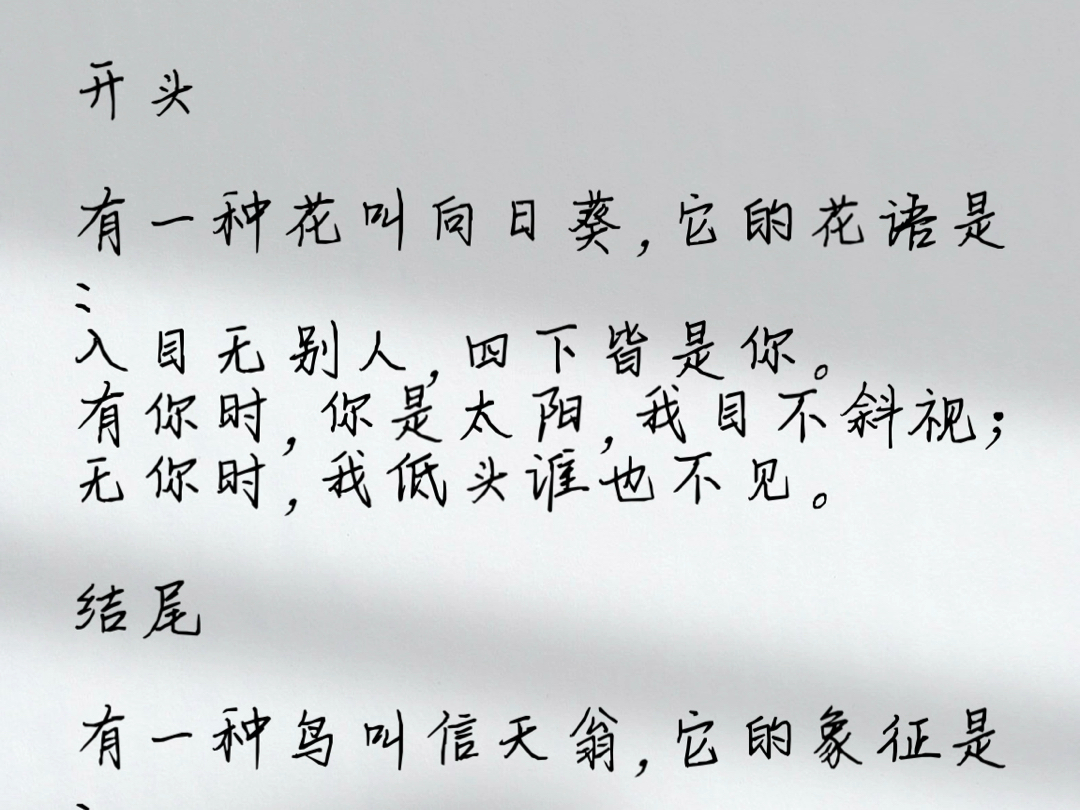 开头
有一种花叫向日葵,它的花语是
:
入目无别人,四下皆是你。
有你时,你是太阳,我目不斜视;
无你时,我低头谁也不见。
结尾
有一种鸟叫信天翁,它的象征是